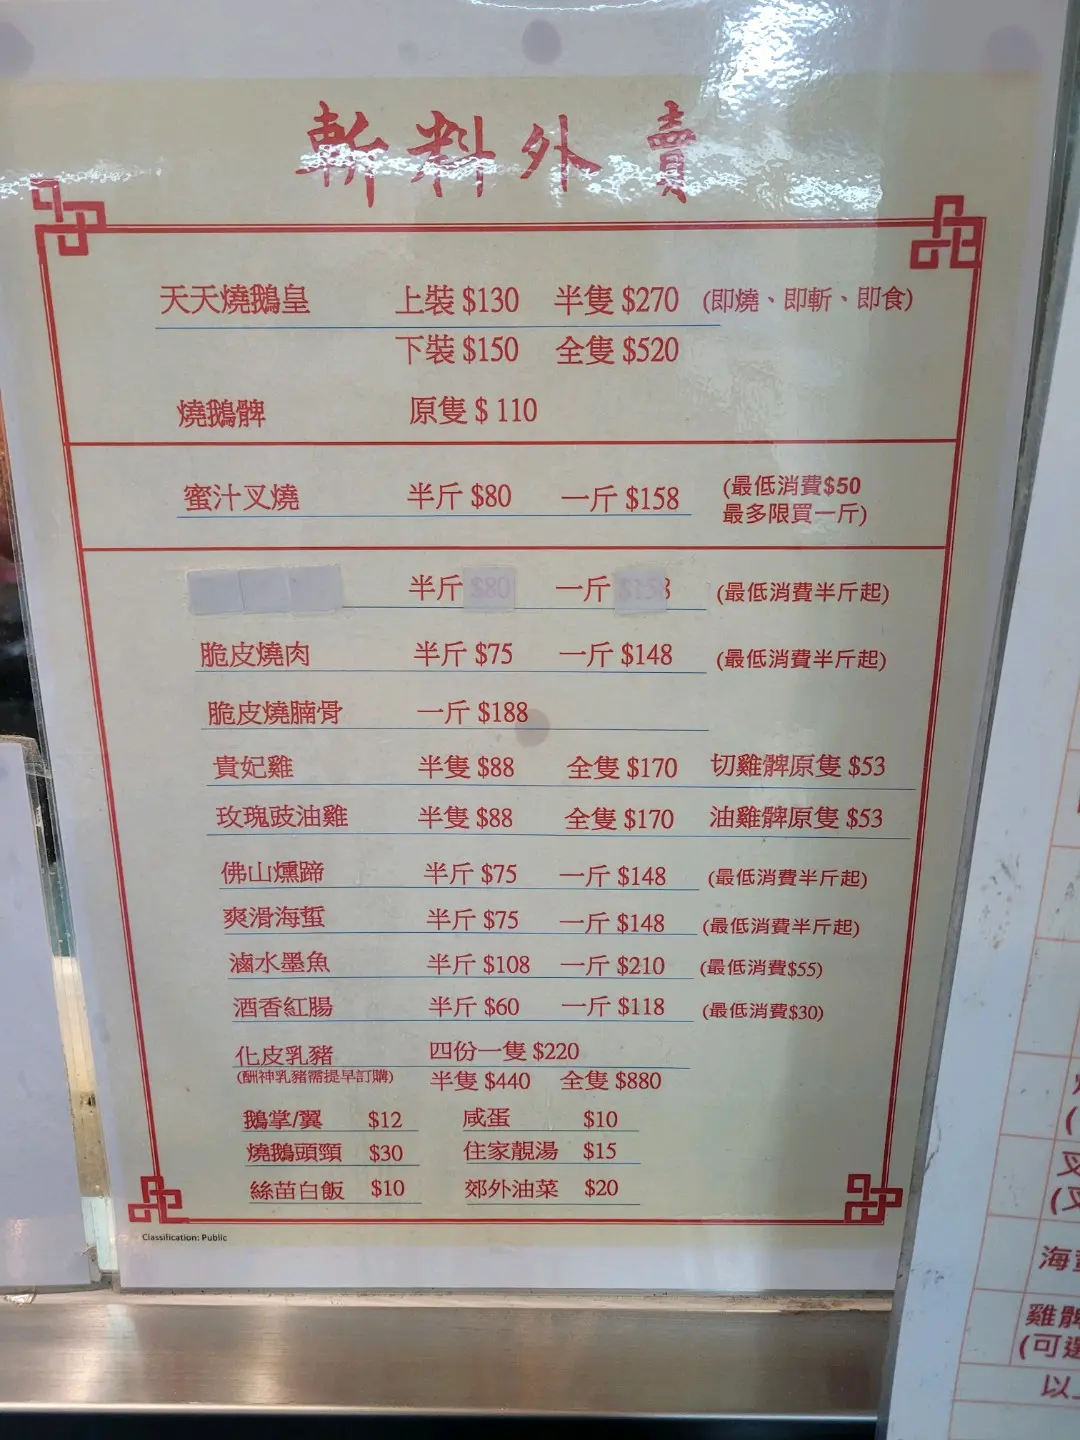 斬料外賣
天天燒鵝皇 上裝 $130 半隻 $270 (即燒、即斬、即食)
下裝 $150 全隻 $520
燒鵝髀 原隻 $ 110
蜜汁叉燒 半斤 $80 一斤 $158 (最低消費$50
最多限買一斤)
半斤 $80 一斤 $158 (最低消費半斤起)
脆皮燒肉 半斤 $75 一斤 $148 (最低消費半斤起)
脆皮燒腩骨 一斤 $188
貴妃雞 半隻 $88 全隻 $170 切雞髀原隻 $53
玫瑰豉油雞 半隻 $88 全隻 $170 油雞髀原隻 $53
佛山燻蹄 半斤 $75 一斤 $148 (最低消費半斤起)
爽滑海蜇 半斤 $75 一斤 $148 (最低消費半斤起)
滷水墨魚 半斤 $108 一斤 $210 (最低消費$55)
酒香紅腸 半斤 $60 一斤 $118 (最低消費$30)
化皮乳豬 四份一隻 $220
(酬神乳豬需提早訂購) 半隻 $440 全隻 $880
鵝掌/翼 $12 咸蛋 $10
燒鵝頭頸 $30 住家靚湯 $15
絲苗白飯 $10 郊外油菜 $20
Classification: Public
叉
海
雞髀
(可選
以上